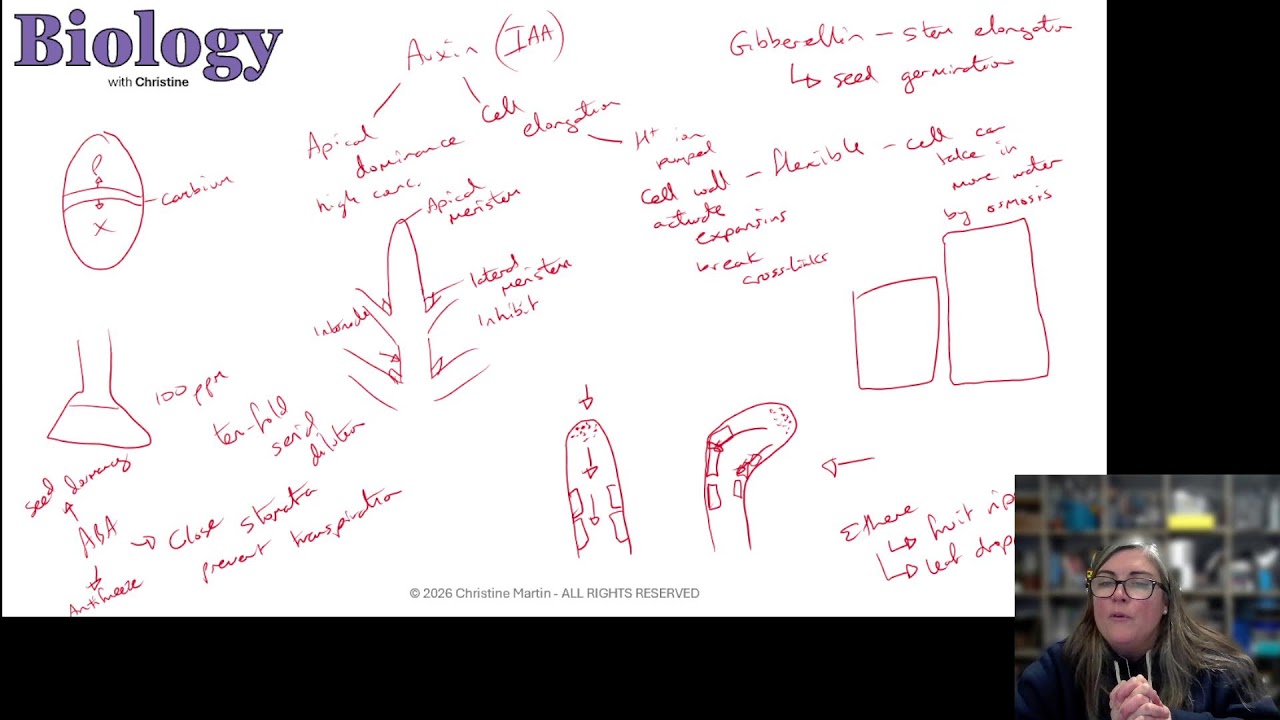 Biology
with Christine
Auxin (IAA)
Apical
dominance
high conc.
Cell
elongation
H+ ion
pumped
cell wall – flexible – cell can
take in
more water
by osmosis
activate
expansins
break
cross-links
Gibberellin – stem elongation
seed germination
cambium
X
Apical
meristem
lateral
meristem
inhibit
Internode
100 ppm
ten-fold
serial
dilution
seed dormancy
ABA
Close stomata
prevent transpiration
Antifreeze
Ethene
fruit rip
leaf drop
© 2026 Christine Martin - ALL RIGHTS RESERVED